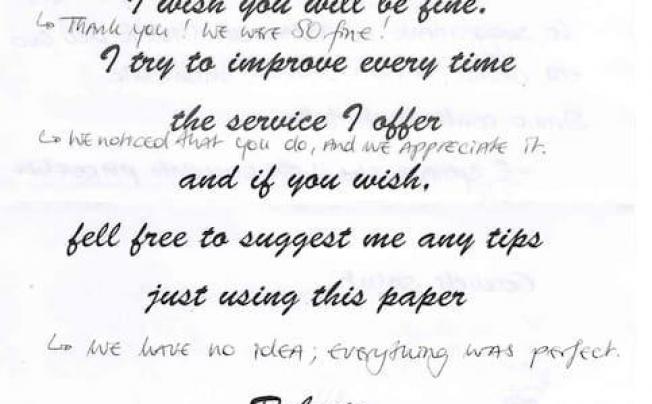 I wish you will be fine.
↳ THANK you! WE WERE SO fine!
I try to improve every time
the service I offer
↳ WE noticed that you do, AND WE APPRECIATE it.
and if you wish.
fell free to suggest me any tips
just using this paper
↳ WE HAVE no IDEA; EVERYTHING WAS perfect.